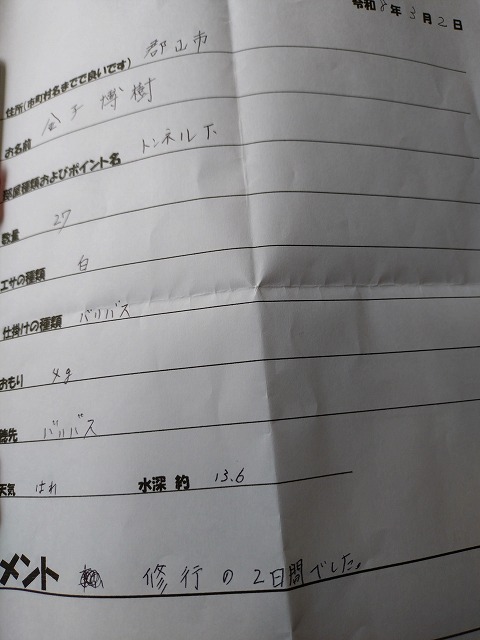 令和8年3月2日
住所(市町村名までで良いです) 郡山市
お名前 金子 博樹
部屋種類およびポイント名 トンネル下
数量 27
エサの種類 白
仕掛けの種類 バリバス
おもり 4g
穂先 バリバス
天気 はれ 水深 約 13.6
メント 修行の2日間でした。